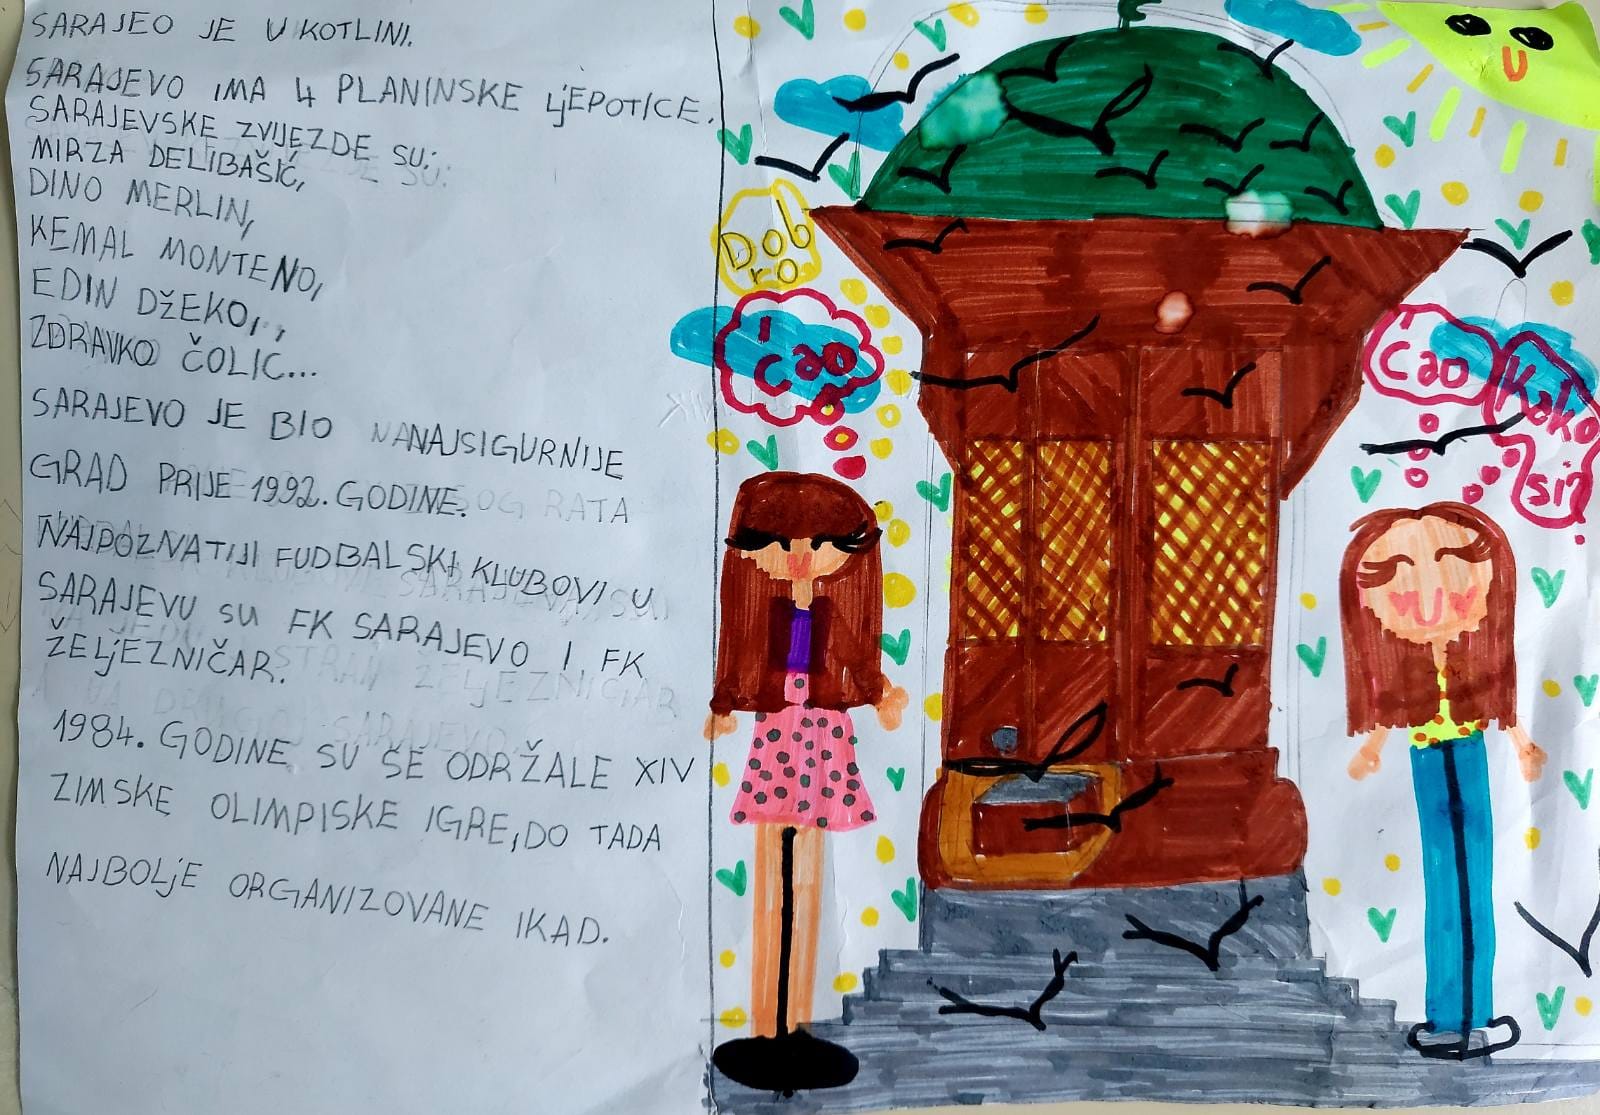 SARAJEO JE U KOTLINI.
SARAJEVO IMA 4 PLANINSKE LjEPOTICE.
SARAJEVSKE ZVIJEZDE SU:
MIRZA DELIBAŠIĆ,
DINO MERLIN,
KEMAL MONTENO,
EDIN DŽEKO,,
ZDRAVKO ČOLIĆ...
SARAJEVO JE BIO NANAJSIGURNIJE
GRAD PRIJE 1992. GODINE.
NAJPOZNATIJI FUDBALSKI KLUBOVI U
SARAJEVU SU FK SARAJEVO I FK
ŽELjEZNIČAR.
1984. GODINE SU SE ODRŽALE XIV
ZIMSKE OLIMPISKE IGRE, DO TADA
NAJBOLjE ORGANIZOVANE IKAD.
Dob
ro
ćao
ćao
Kako
si?